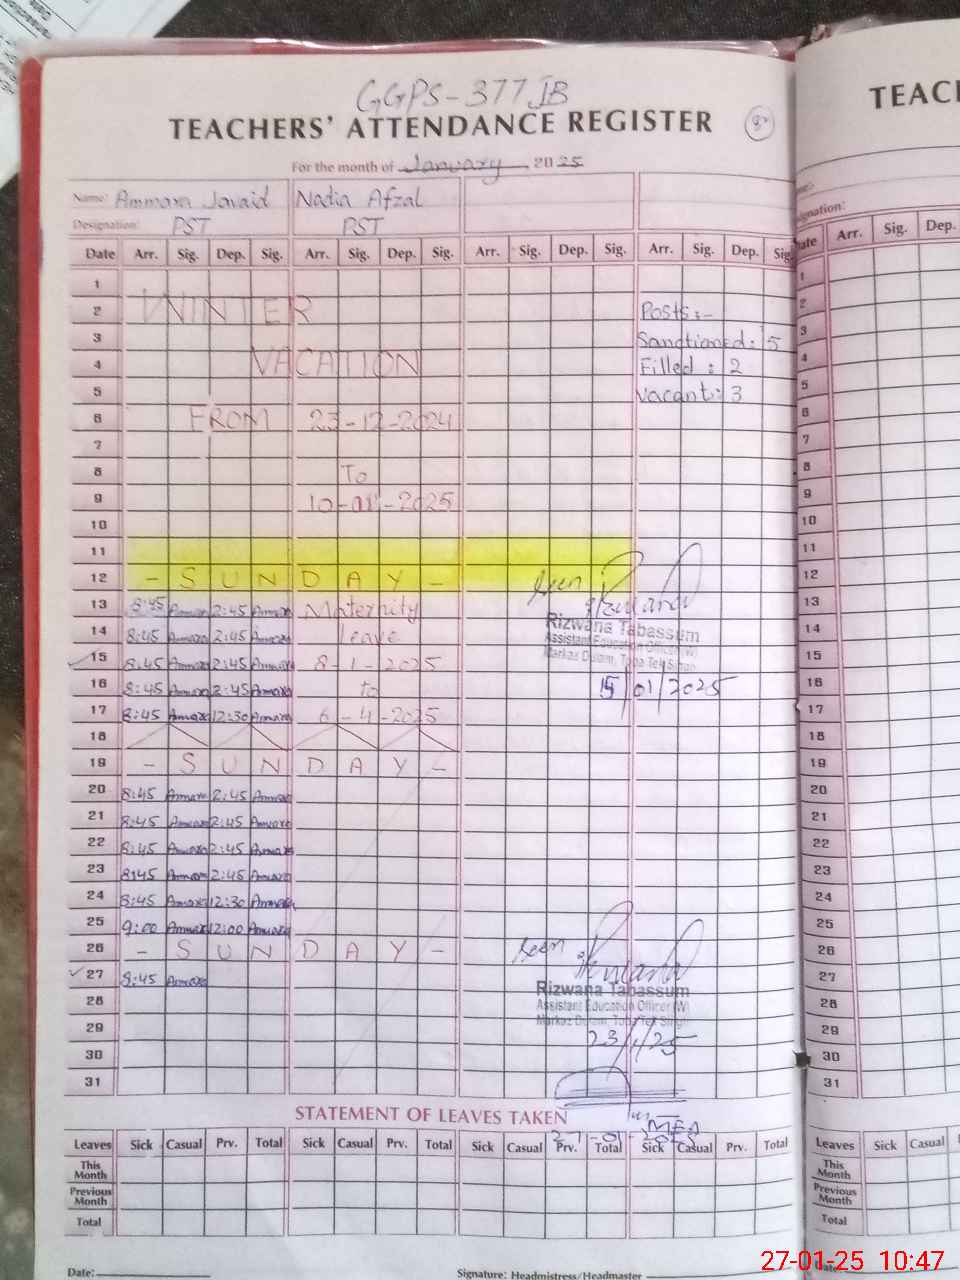 GGPS-377JB
TEACHERS' ATTENDANCE REGISTER
8
For the month of January 2025
Name: Ammara Javaid Nadia Afzal
Designation: PST PST
Date Arr. Sig. Dep. Sig. Arr. Sig. Dep. Sig. Arr. Sig. Dep. Sig. Arr. Sig. Dep. Sig.
1
2 WINTER Posts:-
3 Sanctioned: 5
4 VACATION Filled: 2
5 Vacant: 3
6 FROM 23-12-2024
7
8 To
9 10-01-2025
10
11
12 - SUNDAY - Seen
13 8:45 Ammara 2:45 Ammara Maternity
Rizwana Tabassum
14 8:45 Ammara 2:45 Ammara Leave
Assistant Education Officer (W)
15 8:45 Ammara 2:45 Ammara 8-1-2025
Markaz Dulam, Toba Tek Singh
16 8:45 Ammara 2:45 Ammara to 15/01/2025
17 8:45 Ammara 12:30 Ammara 6-4-2025
18
19 - SUNDAY -
20 8:45 Ammara 2:45 Ammara
21 8:45 Ammara 2:45 Ammara
22 8:45 Ammara 2:45 Ammara
23 8:45 Ammara 2:45 Ammara
24 8:45 Ammara 12:30 Ammara
25 9:00 Ammara 12:00 Ammara
26 - SUNDAY - Seen
27 8:45 Ammara
Rizwana Tabassum
28 Assistant Education Officer (W)
Markaz Dulam, Toba Tek Singh
29 23/1/25
30
31
STATEMENT OF LEAVES TAKEN
MEA
27-01-2025
Leaves Sick Casual Prv. Total Sick Casual Prv. Total Sick Casual Prv. Total Sick Casual Prv. Total
This Month
Previous Month
Total
Date: Signature: Headmistress/Headmaster
TEAC
Date Arr. Sig. Dep.
1
2
3
4
5
6
7
8
9
10
11
12
13
14
15
16
17
18
19
20
21
22
23
24
25
26
27
28
29
30
31
Leaves Sick Casual
This Month
Previous Month
Total
Date:
27-01-25 10:47